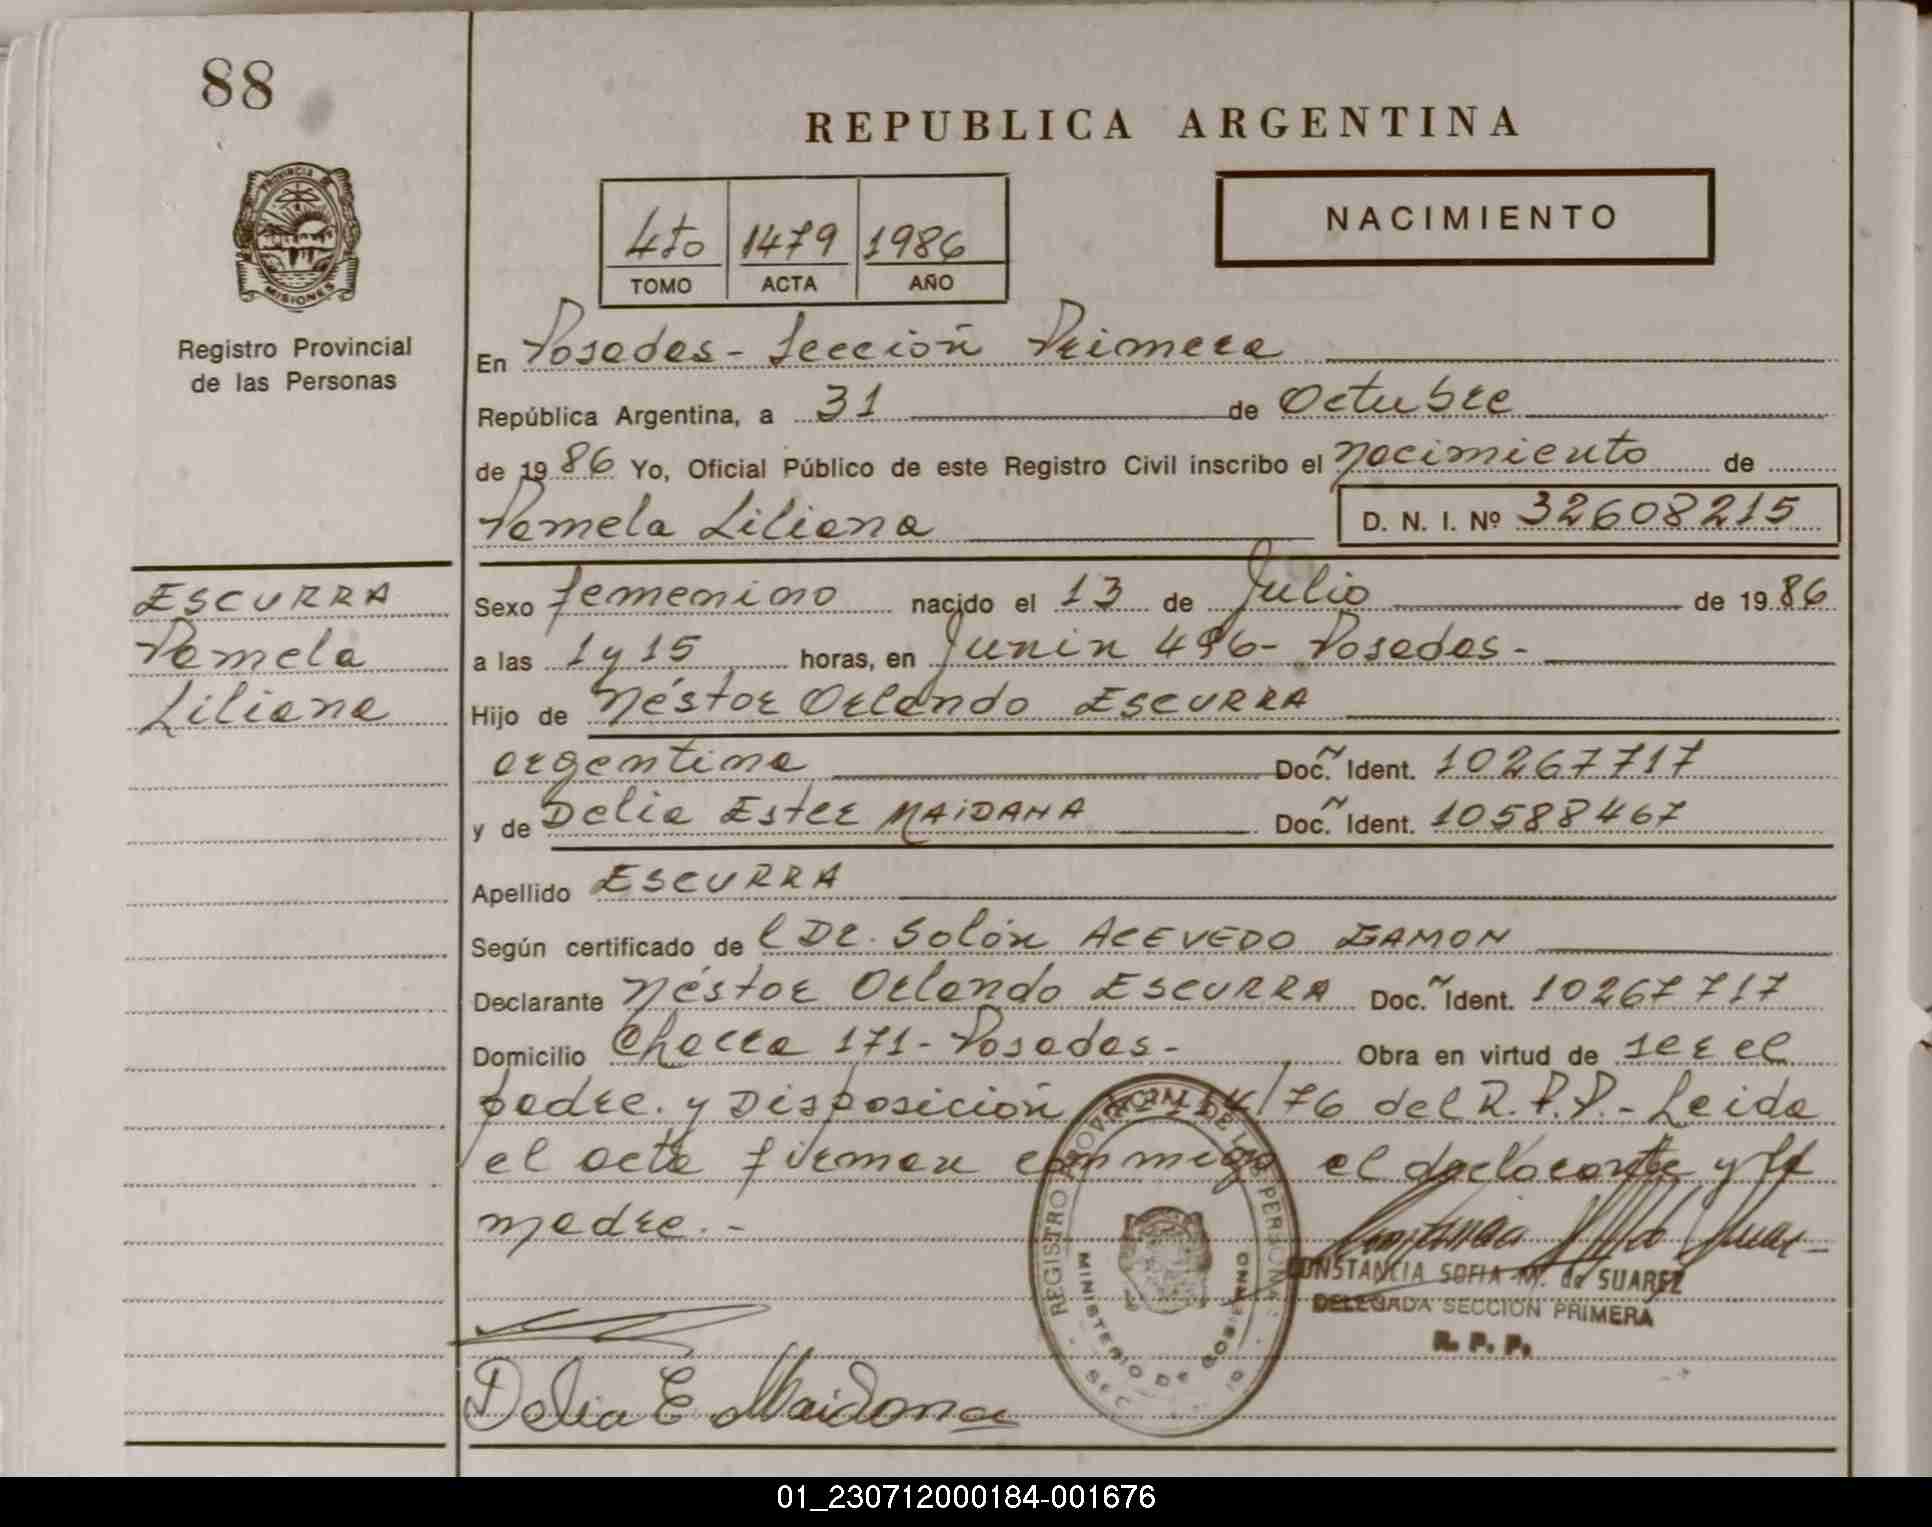 88
REPUBLICA ARGENTINA
PROVINCIA DE
MISIONES
4to 1479 1986
TOMO ACTA AÑO
NACIMIENTO
Registro Provincial
de las Personas
En Posadas - Sección Primera
República Argentina, a 31 de Octubre
de 1986 Yo, Oficial Público de este Registro Civil inscribo el nacimiento de
Pamela Liliana D. N. I. Nº 32608215
ESCURRA
Pamela
Liliana
Sexo femenino nacido el 13 de Julio de 1986
a las 1 y 15 horas, en Junín 496 - Posadas -
Hijo de Néstor Orlando ESCURRA
argentina Doc. Ident. 10267717
y de Delia Ester MAIDANA Doc. Ident. 10588467
Apellido ESCURRA
Según certificado de l Dr. Solón ACEVEDO GAMON
Declarante Néstor Orlando ESCURRA Doc. Ident. 10267717
Domicilio Chacra 171 - Posadas - Obra en virtud de ser el
padre. y Disposición /76 del R.P.P. - Leída
el acta firman conmigo el declarante y la
madre. -
REGISTRO PROVINCIAL DE LAS PERSONAS
MINISTERIO DE GOBIERNO
CONSTANCIA SOFIA M. de SUAREZ
DELEGADA SECCION PRIMERA
R. P. P.
Delia E Maidana
01_230712000184-001676